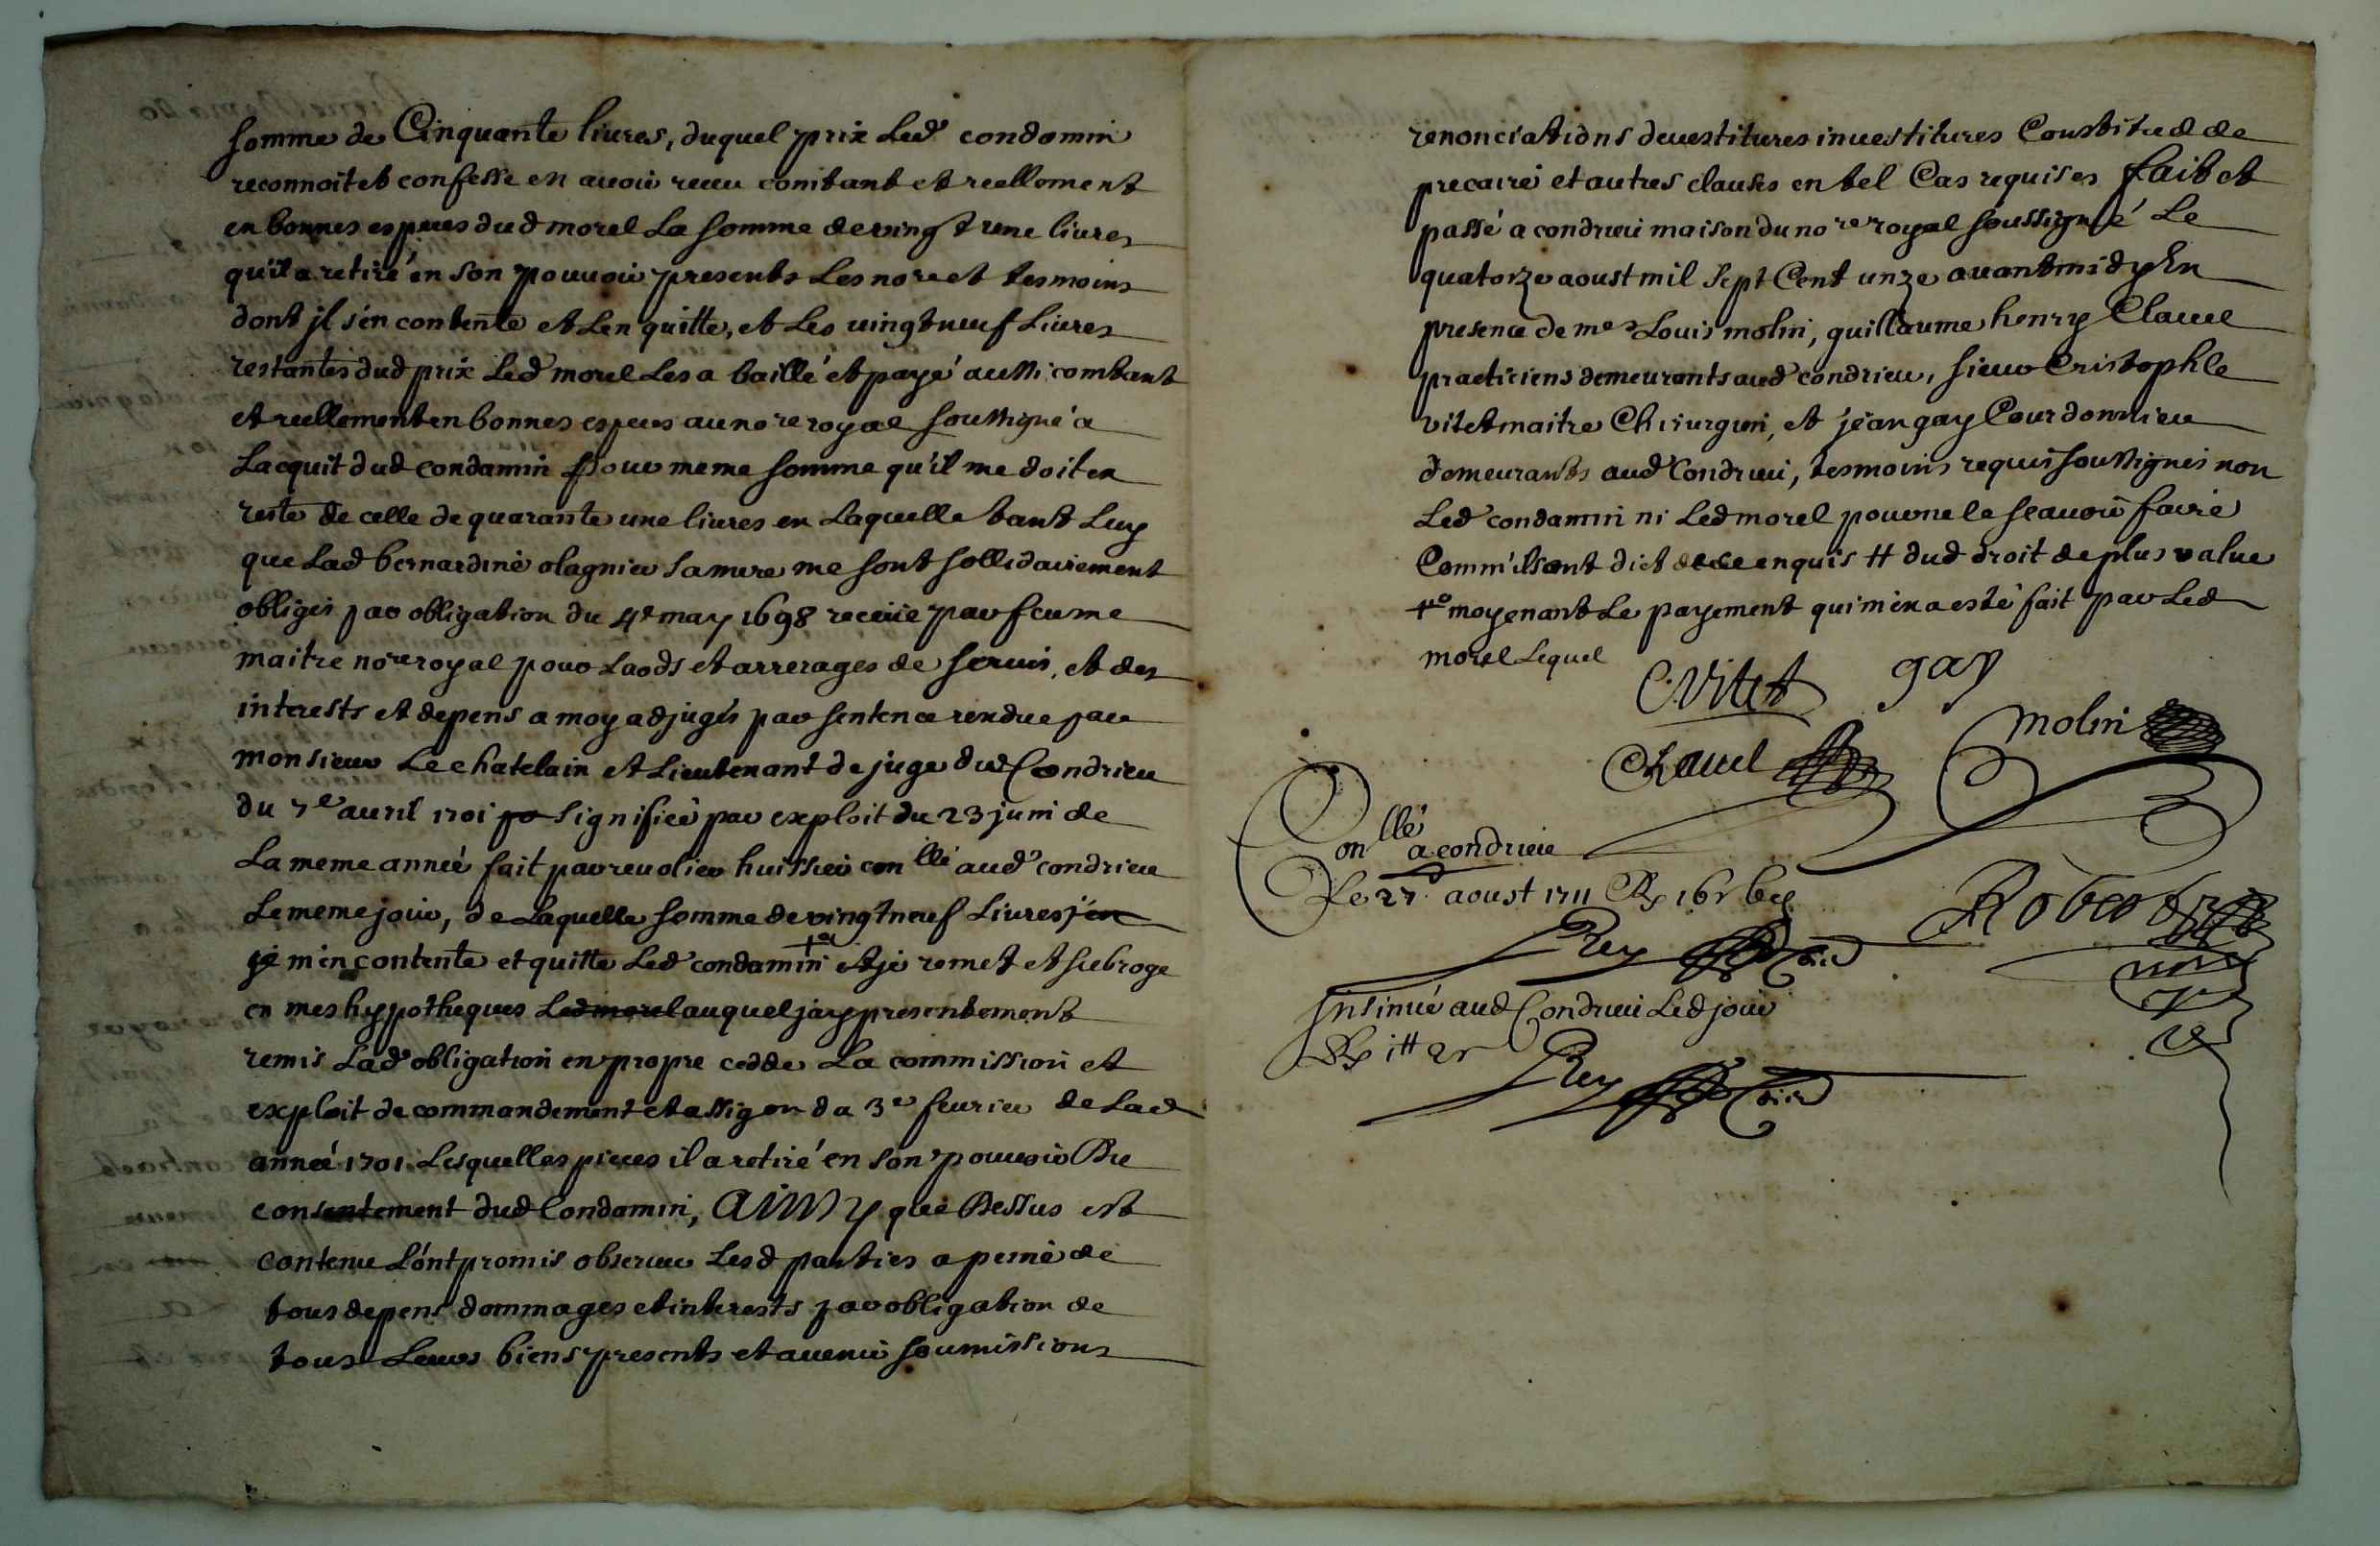 somme de Cinquante livres, duquel prix Led condamin
reconnoit et confesse en avoir receu comtant et reellement
en bonnes especes dud morel La somme de vingt une livres
qu'il a retiré en son pouvoir presents Les nore et tesmoins
dont jl s'en contente et Len quitte, et Les vingt neuf Livres
restantes dud prix Led morel Les a baillé et payé aussi comtant
et reellement en bonnes especes au nore royal soussigné a
Lacquit dud condamin pour meme somme qu'il me doit en
reste de celle de quarante une livres en Laquelle tant Luy
que Lad bernardine olagnier sa mere me sont sollidairement
obligés par obligation du 4e may 1698 receüe par feu me
maitre nore royal pour Laods et arrerages de servis, et des
interests et depens a moy adjugés par sentence rendue par
monsieur Le chatelain et Lieutenant de juge dud Condrieu
du 7e avril 1701 signifiée par exploit du 23 juin de
La meme anneé fait par revolier huissier con llé aud condrieu
Le meme jour, de Laquelle somme de vingt neuf Livres j'en
je m'en contente et quitte Led condamin +o et je remet et subroge
en mes hypotheques Led morel auquel jay presentement
remis Lad obligation en propre cedde La commission et
exploit de commandement et assigon du 3e fevrier de Lad
anneé 1701. Lesquelles pieces il a retiré en son pouvoir Du
consentement dud Condamin, Ainsy que Dessus est
contenu L'ont promis observer Lesd parties a peine de
tous depens dommages et interests par obligation de
tous Leurs biens presents et avenir soumissions
renonciations devestitures investitures Constitud de
precaire et autres clauses en tel Cas requises fait et
passé a condrieu maison du nore royal soussigné Le
quatorze aoust mil sept Cent unze avant midy En
presence de mes Louis molin, guillaume henry Clavel
practiciens demeurants aud condrieu, sieur Cristophle
vitet maitre Chirurgien, et jean gay Courdonnier
demeurants aud Condrieu, tesmoins requis soussignés non
Led condamin ni Led morel pour ne le sçavoir faire
Comm'ils ont dict de ce enquis # dud droit de plus value
+o moyenant Le payement qui m'en a esté fait par Led
morel Lequel
C. Vitet gay
Clavel molin
Con llé a condrieu
Le 27. aoust 1711
Rey
Robert
Insinué aud Condrieu Led jour
Rey